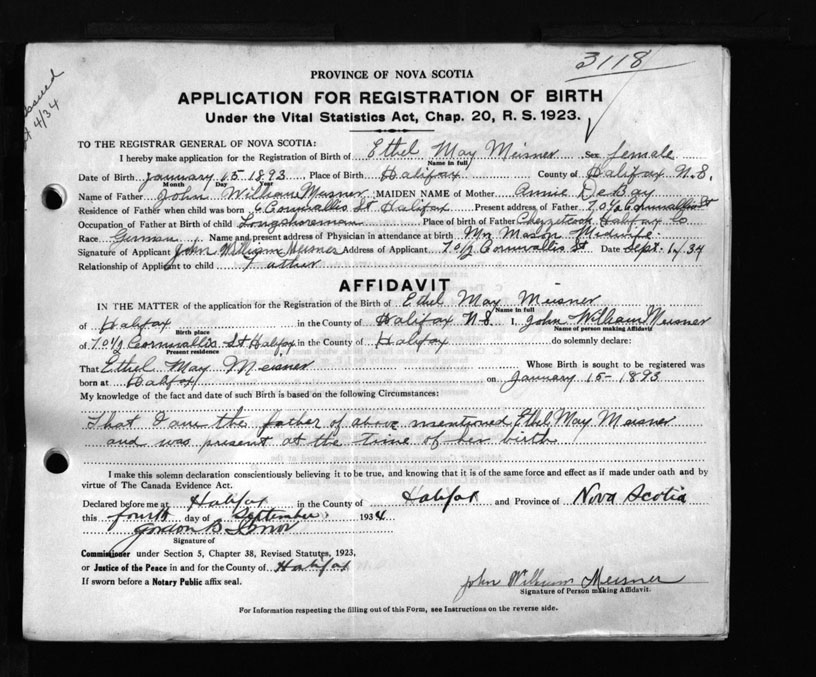 3118
Issued
4/34
PROVINCE OF NOVA SCOTIA
APPLICATION FOR REGISTRATION OF BIRTH
Under the Vital Statistics Act, Chap. 20, R. S. 1923.
TO THE REGISTRAR GENERAL OF NOVA SCOTIA:
I hereby make application for the Registration of Birth of Ethel May Meisner Sex female
Name in full
Date of Birth January 15 1893 Place of Birth Halifax County of Halifax N.S.
Month Day Year
Name of Father John William Meisner MAIDEN NAME of Mother Annie DeBay
Residence of Father when child was born Cornwallis St Halifax Present address of Father 70½ Cornwallis St
Occupation of Father at Birth of child Longshoreman Place of birth of Father Chezzetcook Halifax Co
Race German Name and present address of Physician in attendance at birth Mrs Mason Midwife
Signature of Applicant John William Meisner Address of Applicant 70½ Cornwallis St Date Sept. 34
Relationship of Applicant to child Father
AFFIDAVIT
IN THE MATTER of the application for the Registration of the Birth of Ethel May Meisner
Name in full
of Halifax in the County of Halifax N S I, John William Meisner
Birth place Name of person making Affidavit
of 70½ Cornwallis St Halifax in the County of Halifax do solemnly declare:
Present residence
That Ethel May Meisner Whose Birth is sought to be registered was
born at Halifax on January 15 - 1893
My knowledge of the fact and date of such Birth is based on the following Circumstances:
That I am the father of above mentioned Ethel May Meisner
and was present at the time of her birth
I make this solemn declaration conscientiously believing it to be true, and knowing that it is of the same force and effect as if made under oath and by
virtue of The Canada Evidence Act.
Declared before me at Halifax in the County of Halifax and Province of Nova Scotia
this fourth day of September 1934
Gordon B
Signature of
Commissioner under Section 5, Chapter 38, Revised Statutes, 1923,
or Justice of the Peace in and for the County of Halifax
If sworn before a Notary Public affix seal.
John William Meisner
Signature of Person making Affidavit.
For Information respecting the filling out of this Form, see Instructions on the reverse side.